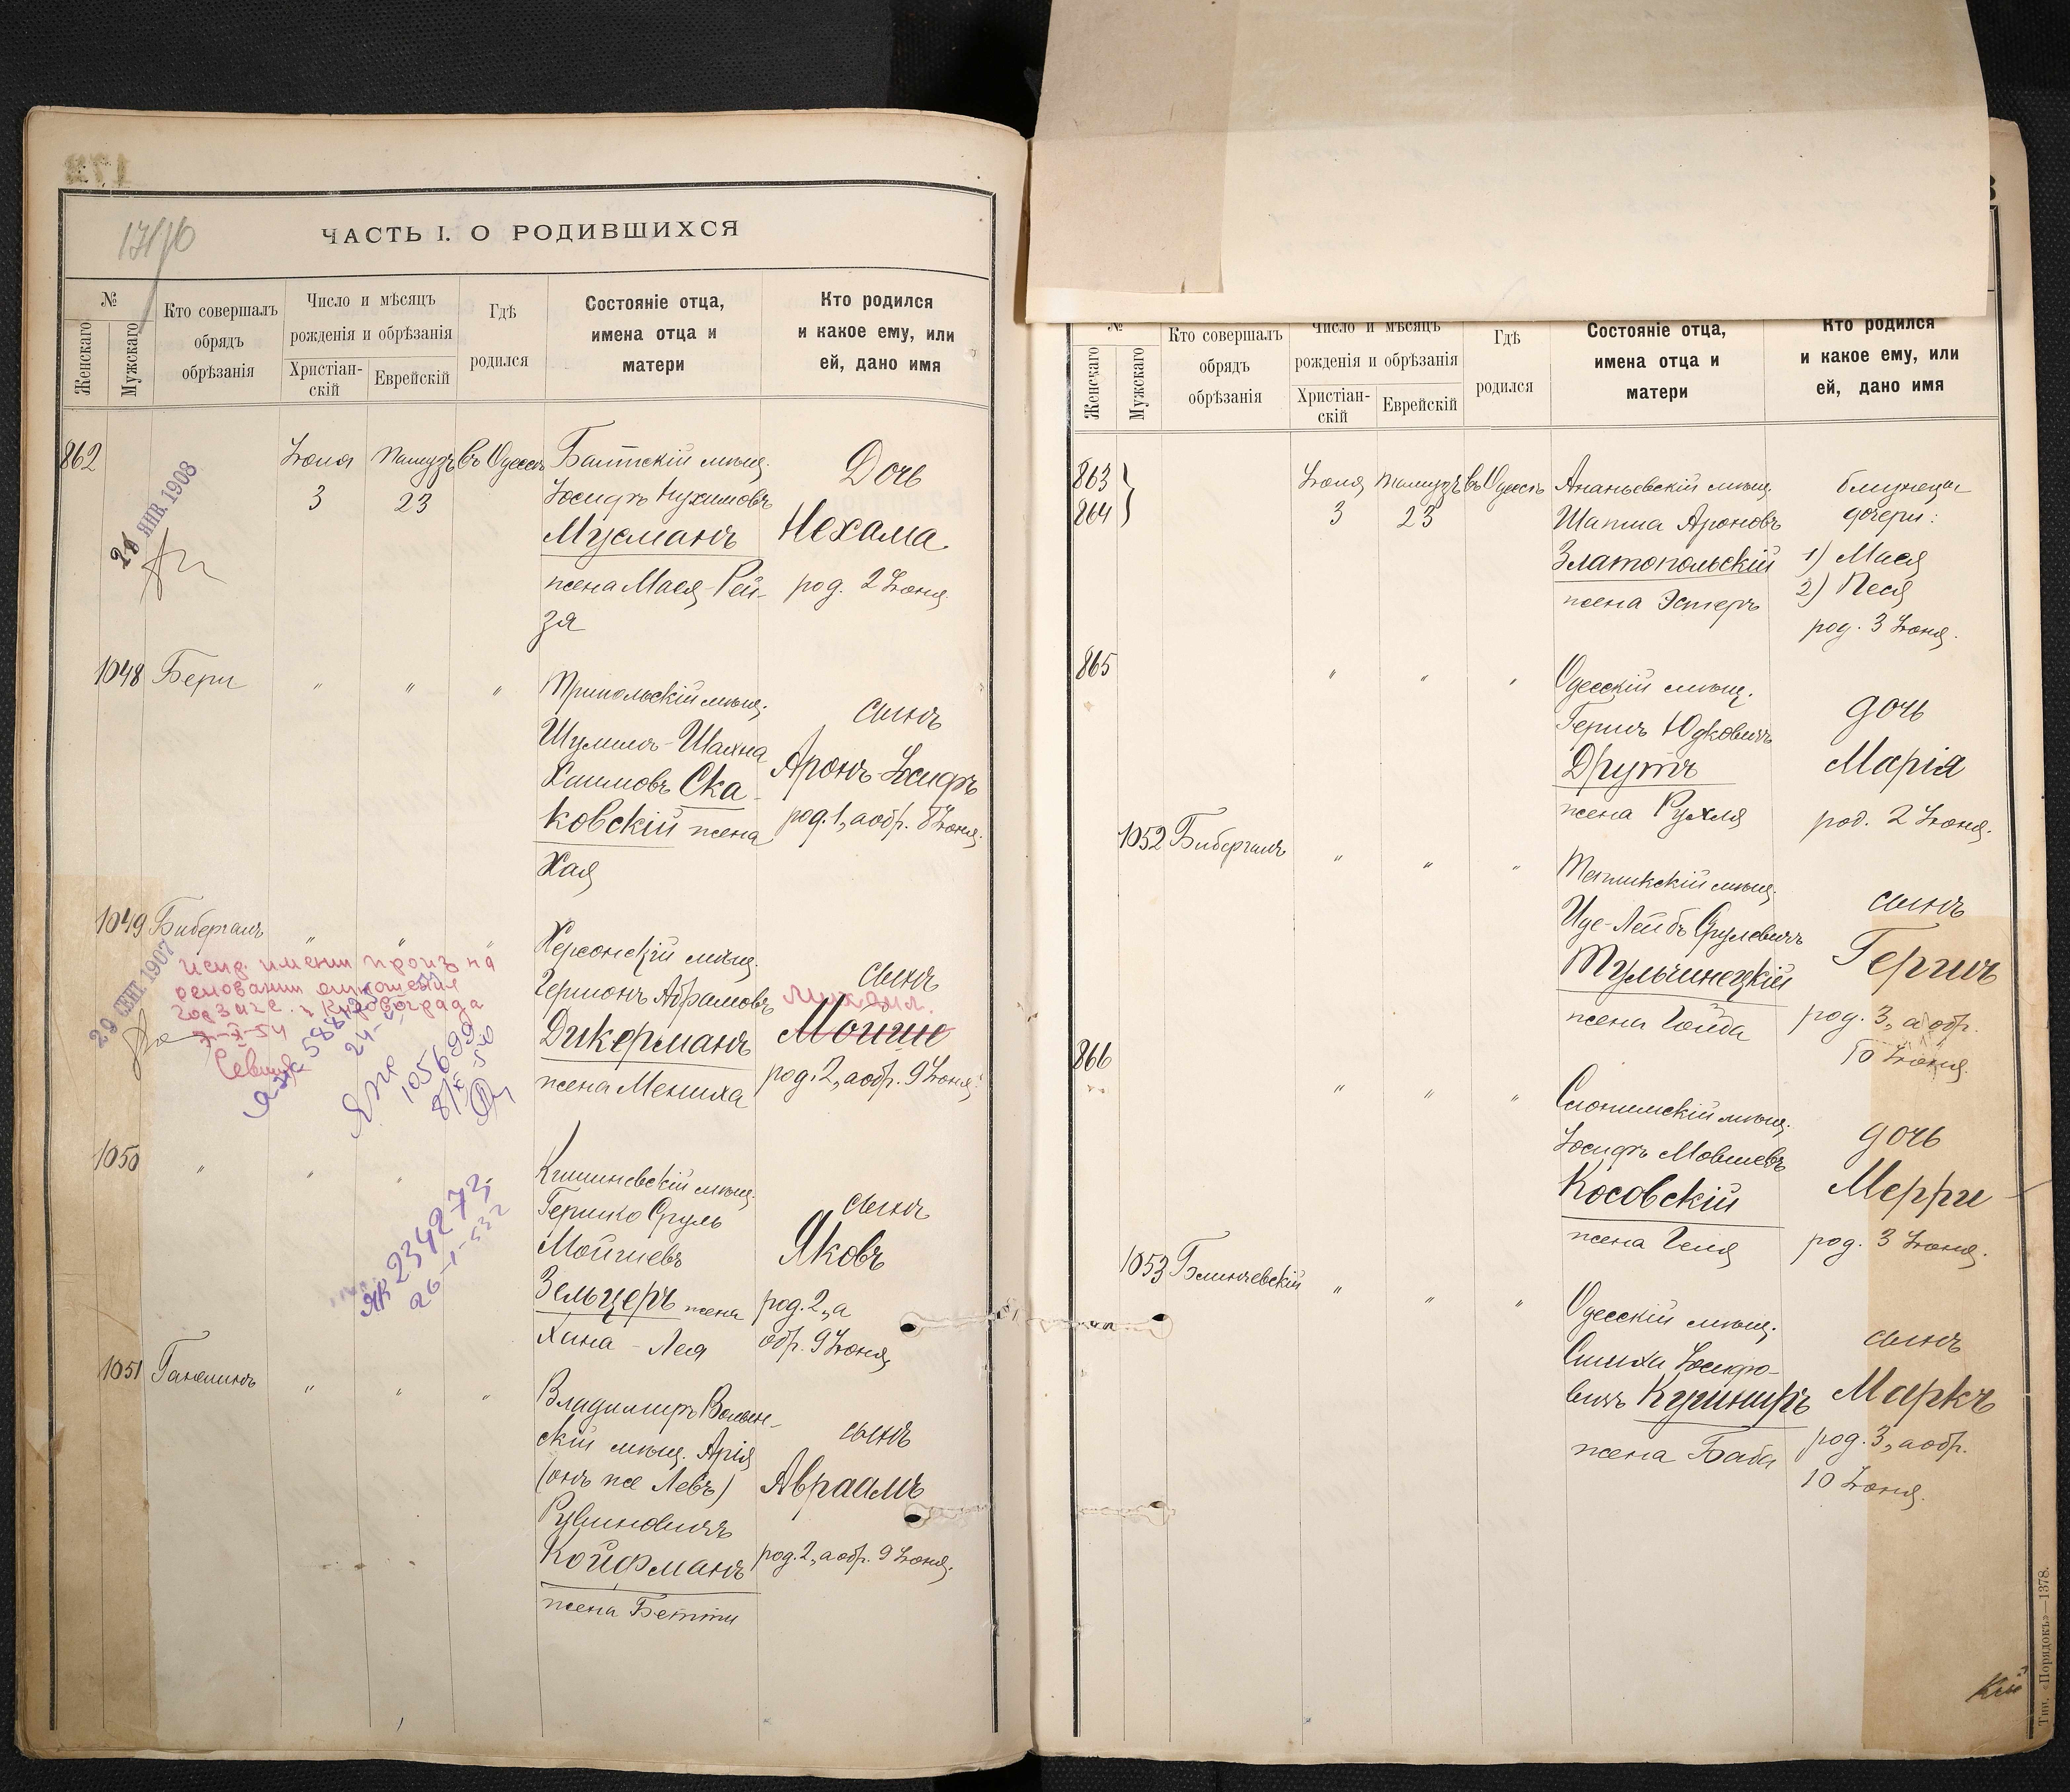 ЧАСТЬ I. О РОДИВШИХСЯ
№
Женскаго
Мужскаго
Кто совершалъ
обрядъ
обрѣзанія
Число и мѣсяцъ
рожденія и обрѣзанія
Христіан-
скій
Еврейскій
Гдѣ
родился
Состояніе отца,
имена отца и
матери
Кто родился
и какое ему, или
ей, дано имя
862
Іюня
3
Тамузъ
23
въ Одессѣ
Балтскій мѣщ.
Іосифъ Нухимовъ
Мусманъ
жена Мася-Рей-
зя
Дочь
Нехама
род. 2 Іюня
ЯНВ. 1908
1048
Бери
" " "
Трипольскій мѣщ.
Шулимъ-Шахна
Хаимовъ Ска-
ковскій жена
Хая
сынъ
Аронъ-Іосифъ
род. 1, а обр. 8 Іюня.
1049
Бибергалъ
" " "
Херсонскій мѣщ.
Гершонъ Абрамовъ
Дикерманъ
жена Мениха
сынъ
Михаил.
Мойше
род. 2, а обр. 9 Іюня.
29 СЕНТ. 1907
основании
Кировограда
105699
1050
" " "
Кишиневскій мѣщ.
Гершко Сруль
Мойшевъ
Зельцеръ жена
Хана-Лея
сынъ
Яковъ
род. 2, а
обр. 9 Іюня
234272
26-1-53 г
1051
Ганелинъ
" " "
Владимиръ Волын-
скій мѣщ. Арія
(онъ же Левъ)
Рувиновичъ
Койфманъ
жена Бетти
сынъ
Авраамъ
род. 2, а обр. 9 Іюня.
№
Женскаго
Мужскаго
Кто совершалъ
обрядъ
обрѣзанія
Число и мѣсяцъ
рожденія и обрѣзанія
Христіан-
скій
Еврейскій
Гдѣ
родился
Состояніе отца,
имена отца и
матери
Кто родился
и какое ему, или
ей, дано имя
863
864
Іюня
3
Тамузъ
23
въ Одессѣ
Ананьевскій мѣщ.
Шапша Ароновъ
Златопольскій
жена Эстеръ
близнецы
дочери:
1) Мася
2) Песя
род. 3 Іюня.
865
" " "
Одесскій мѣщ.
Гершъ Юдковичъ
Друтъ
жена Рухля
дочь
Марія
род. 2 Іюня.
1052
Бибергалъ
" " "
Тепликскій мѣщ.
Иде-Лейбъ Срулевичъ
Тульчинецкій
жена Гольда
сынъ
Гершъ
род. 3, а обр.
10 Іюня.
866
" " "
Слонимскій мѣщ.
Іосифъ Мовшевъ
Косовскій
жена Геня
дочь
Мерри
род. 3 Іюня.
1053
Блинчевскій
" " "
Одесскій мѣщ.
Симха Іосифо-
вичъ Кушниръ
жена Баба
сынъ
Маркъ
род. 3, а обр.
10 Іюня.
Тип. «Порядокъ»—1378.